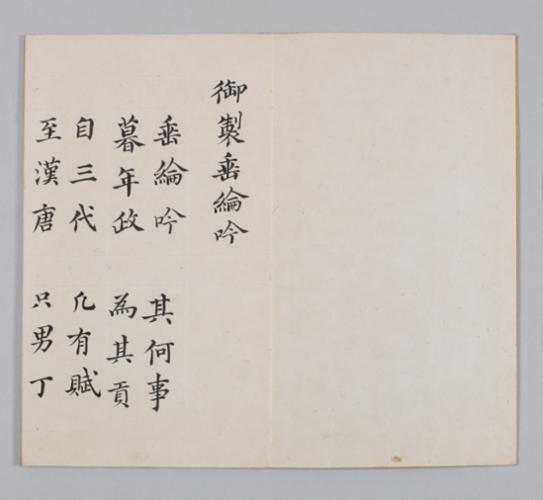 御製垂綸吟
垂綸吟 其何事
暮年政 為其貢
自三代 凡有賦
至漢唐 只男丁